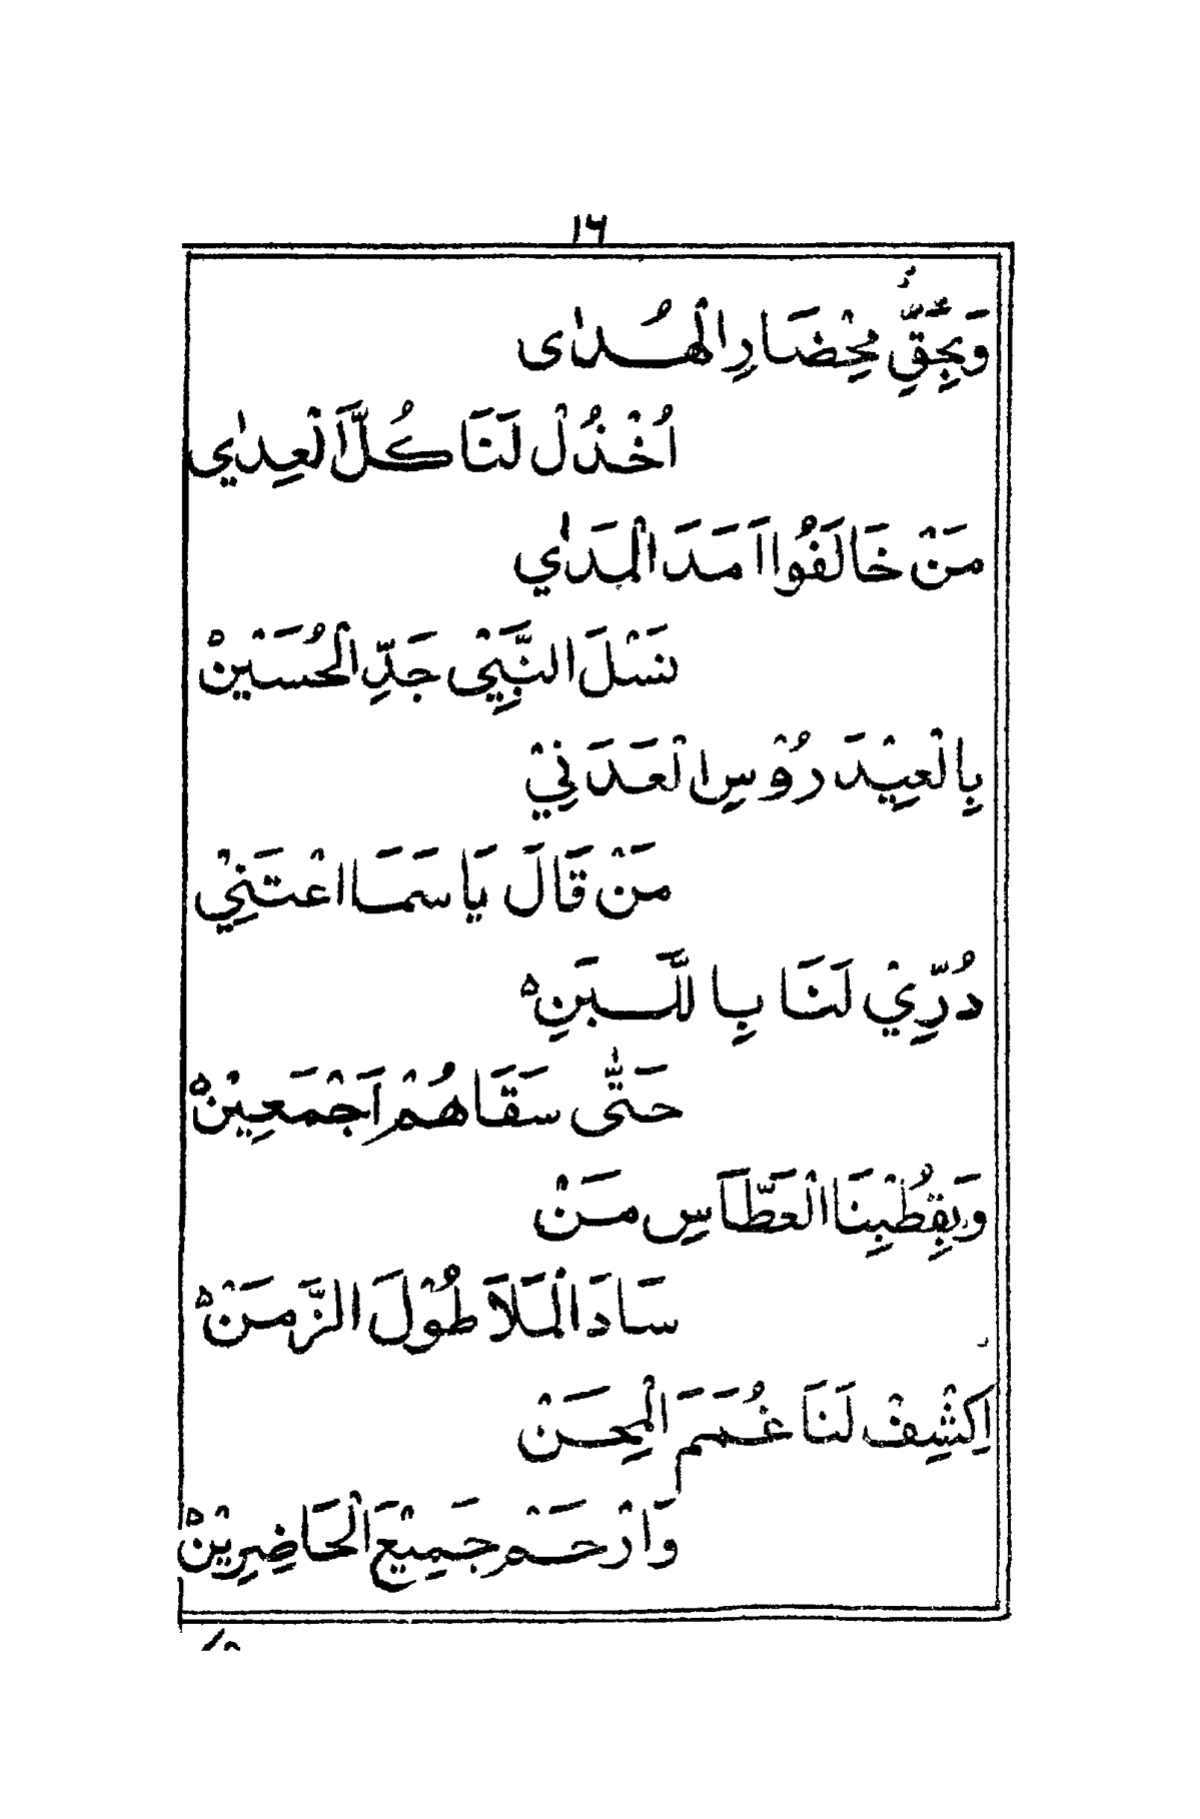 ١٦
وَبِحَقِّ مِحْضَارِ الْهُدٰى
اُخْذُلْ لَنَا كُلَّ الْعِدٰي
مَنْ خَالَفُوا اَمَدَ الْمَدٰي
نَسْلَ النَّبِيّ جَدِّ الْحُسَيْنْ
بِالْعِيْدَرُوْسِ الْعَدَنِيْ
مَنْ قَالَ يَا سَمَا اعْتَنِيْ
دُرِّيْ لَنَا بِاللَّبَنِ
حَتّٰى سَقَاهُمْ اَجْمَعِيْنْ
وَبِقُطْبِنَا الْعَطَّاسِ مَنْ
سَادَ الْمَلَا طُوْلَ الزَّمَنْ
اِكْشِفْ لَنَا غُمَمَ الْمِحَنْ
وَارْحَمْ جَمِيْعَ الْحَاضِرِيْنْ